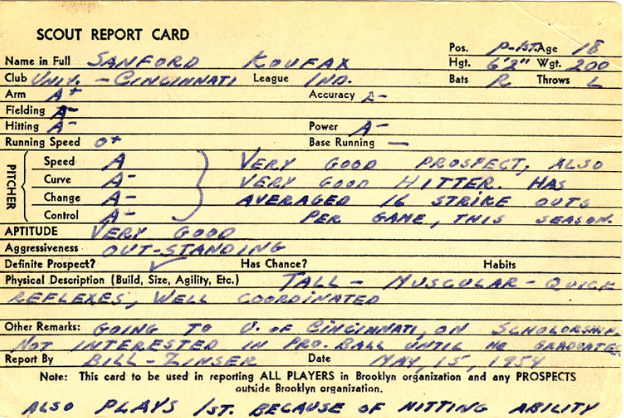 SCOUT REPORT CARD
Pos. P-1ST. Age 18
Name in Full SANFORD KOUFAX Hgt. 6'2" Wgt. 200
Club UNIV. - CINCINNATI League IND. Bats R Throws L
Arm A+ Accuracy A-
Fielding A-
Hitting A- Power A-
Running Speed O+ Base Running —
PITCHER
Speed A VERY GOOD PROSPECT, ALSO
Curve A- VERY GOOD HITTER. HAS
Change A- AVERAGED 16 STRIKE OUTS
Control A- PER GAME, THIS SEASON.
APTITUDE VERY GOOD
Aggressiveness OUT-STANDING
Definite Prospect? ✓ Has Chance? Habits
Physical Description (Build, Size, Agility, Etc.) TALL - MUSCULAR - QUICK
REFLEXES, WELL COORDINATED
Other Remarks: GOING TO U. OF CINCINNATI, ON SCHOLORSHIP.
NOT INTERESTED IN PRO. BALL UNTIL HE GRADUATES
Report By BILL - ZINSER Date MAY, 15, 1954
Note: This card to be used in reporting ALL PLAYERS in Brooklyn organization and any PROSPECTS
outside Brooklyn organization.
ALSO PLAYS 1ST. BECAUSE OF HITTING ABILITY